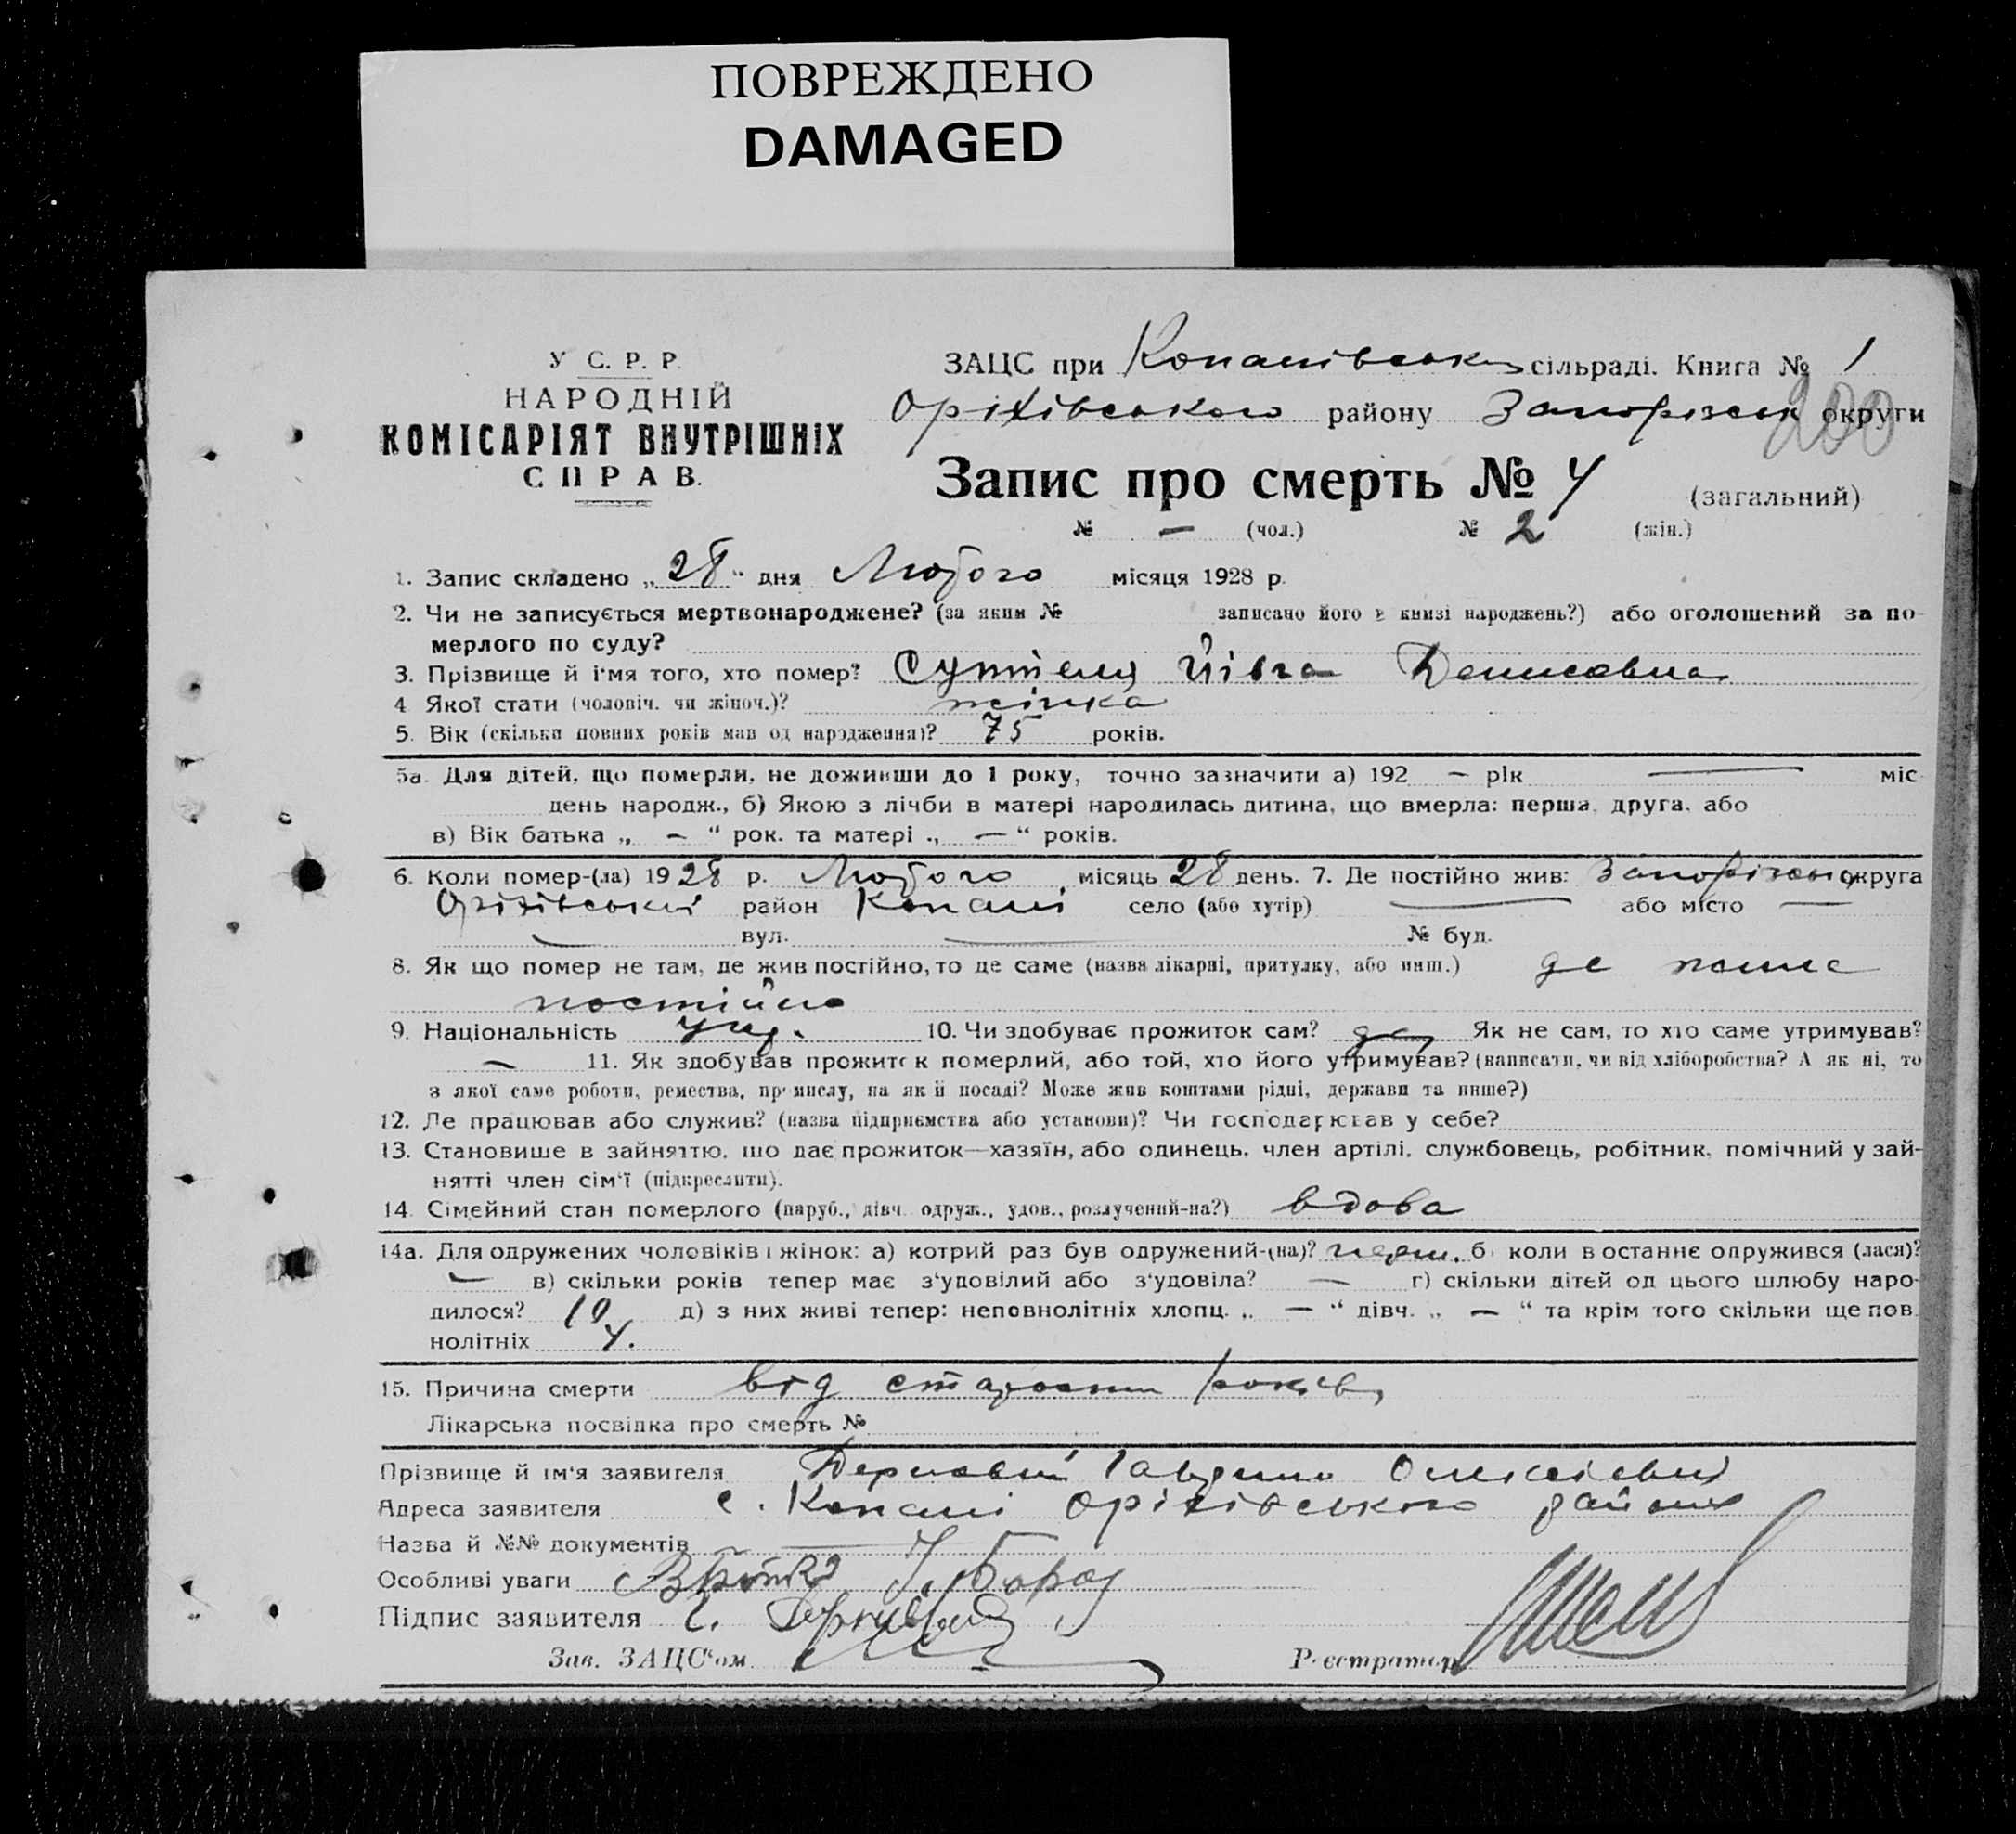 ПОВРЕЖДЕНО
DAMAGED
У С. Р. Р.
НАРОДНІЙ
КОМІСАРІЯТ ВНУТРІШНІХ
СПРАВ.
ЗАЦС при Копанівськ сільраді. Книга № 1
Оріхівського району Запорізськ округи
200
Запис про смерть № 4 (загальний)
№ — (чол.) № 2 (жін.)
1. Запис складено „28“ дня Лютого місяця 1928 р.
2. Чи не записується мертвонароджене? (за яким № записано його в книзі народжень?) або оголошений за по-
мерлого по суду?
3. Прізвище й і'мя того, хто помер? Йівга Денисовна
4 Якої статі (чоловіч. чи жіноч.)? жінка
5. Вік (скільки повних років мав од народження)? 75 років.
5а. Для дітей, що померли, не доживши до 1 року, точно зазначити а) 192 — рік — міс
день народж., б) Якою з лічби в матері народилась дитина, що вмерла: перша, друга, або
в) Вік батька „ — “ рок. та матері „ — “ років.
6. Коли помер-(ла) 1928 р. Лютого місяць 28 день. 7. Де постійно жив: Запорізськ округа
Оріхівський район Копані село (або хутір) — або місто —
— вул. — № буд.
8. Як що помер не там, де жив постійно, то де саме (назва лікарні, притулку, або инш.) де
постійно
9. Національність укр. 10. Чи здобуває прожиток сам? да Як не сам, то хто саме утримував?
— 11. Як здобував прожиток померлий, або той, хто його утримував? (написати, чи від хліборобства? А як ні, то
з якої саме роботи, ремества, промислу, на якій посаді? Може жив коштами рідні, держави та инше?)
12. Де працював або служив? (назва підприємства або установи)? Чи господарював у себе?
13. Становище в зайняттю, що дає прожиток—хазяїн, або одинець, член артілі, службовець, робітник, помічний у зай-
нятті член сім'ї (підкреслити).
14. Сімейний стан померлого (паруб., дівч. одруж., удов., розлучений-на?) вдова
14а. Для одружених чоловіків і жінок: а) котрий раз був одружений-(на)? перш. б) коли в останнє одружився (лася)?
— в) скільки років тепер має з'удовілий або з'удовіла? — г) скільки дітей од цього шлюбу наро-
дилося? 10 д) з них живі тепер: неповнолітніх хлопц. „ — “ дівч. „ — “ та крім того скільки ще пов.
нолітніх 4.
15. Причина смерти від старости років
Лікарська посвідка про смерть №
Прізвище й ім'я заявителя
Адреса заявителя с. Копані Оріхівського району
Назва й №№ документів —
Особливі уваги
Підпис заявителя
Зав. ЗАЦС“ом
Реєстратор